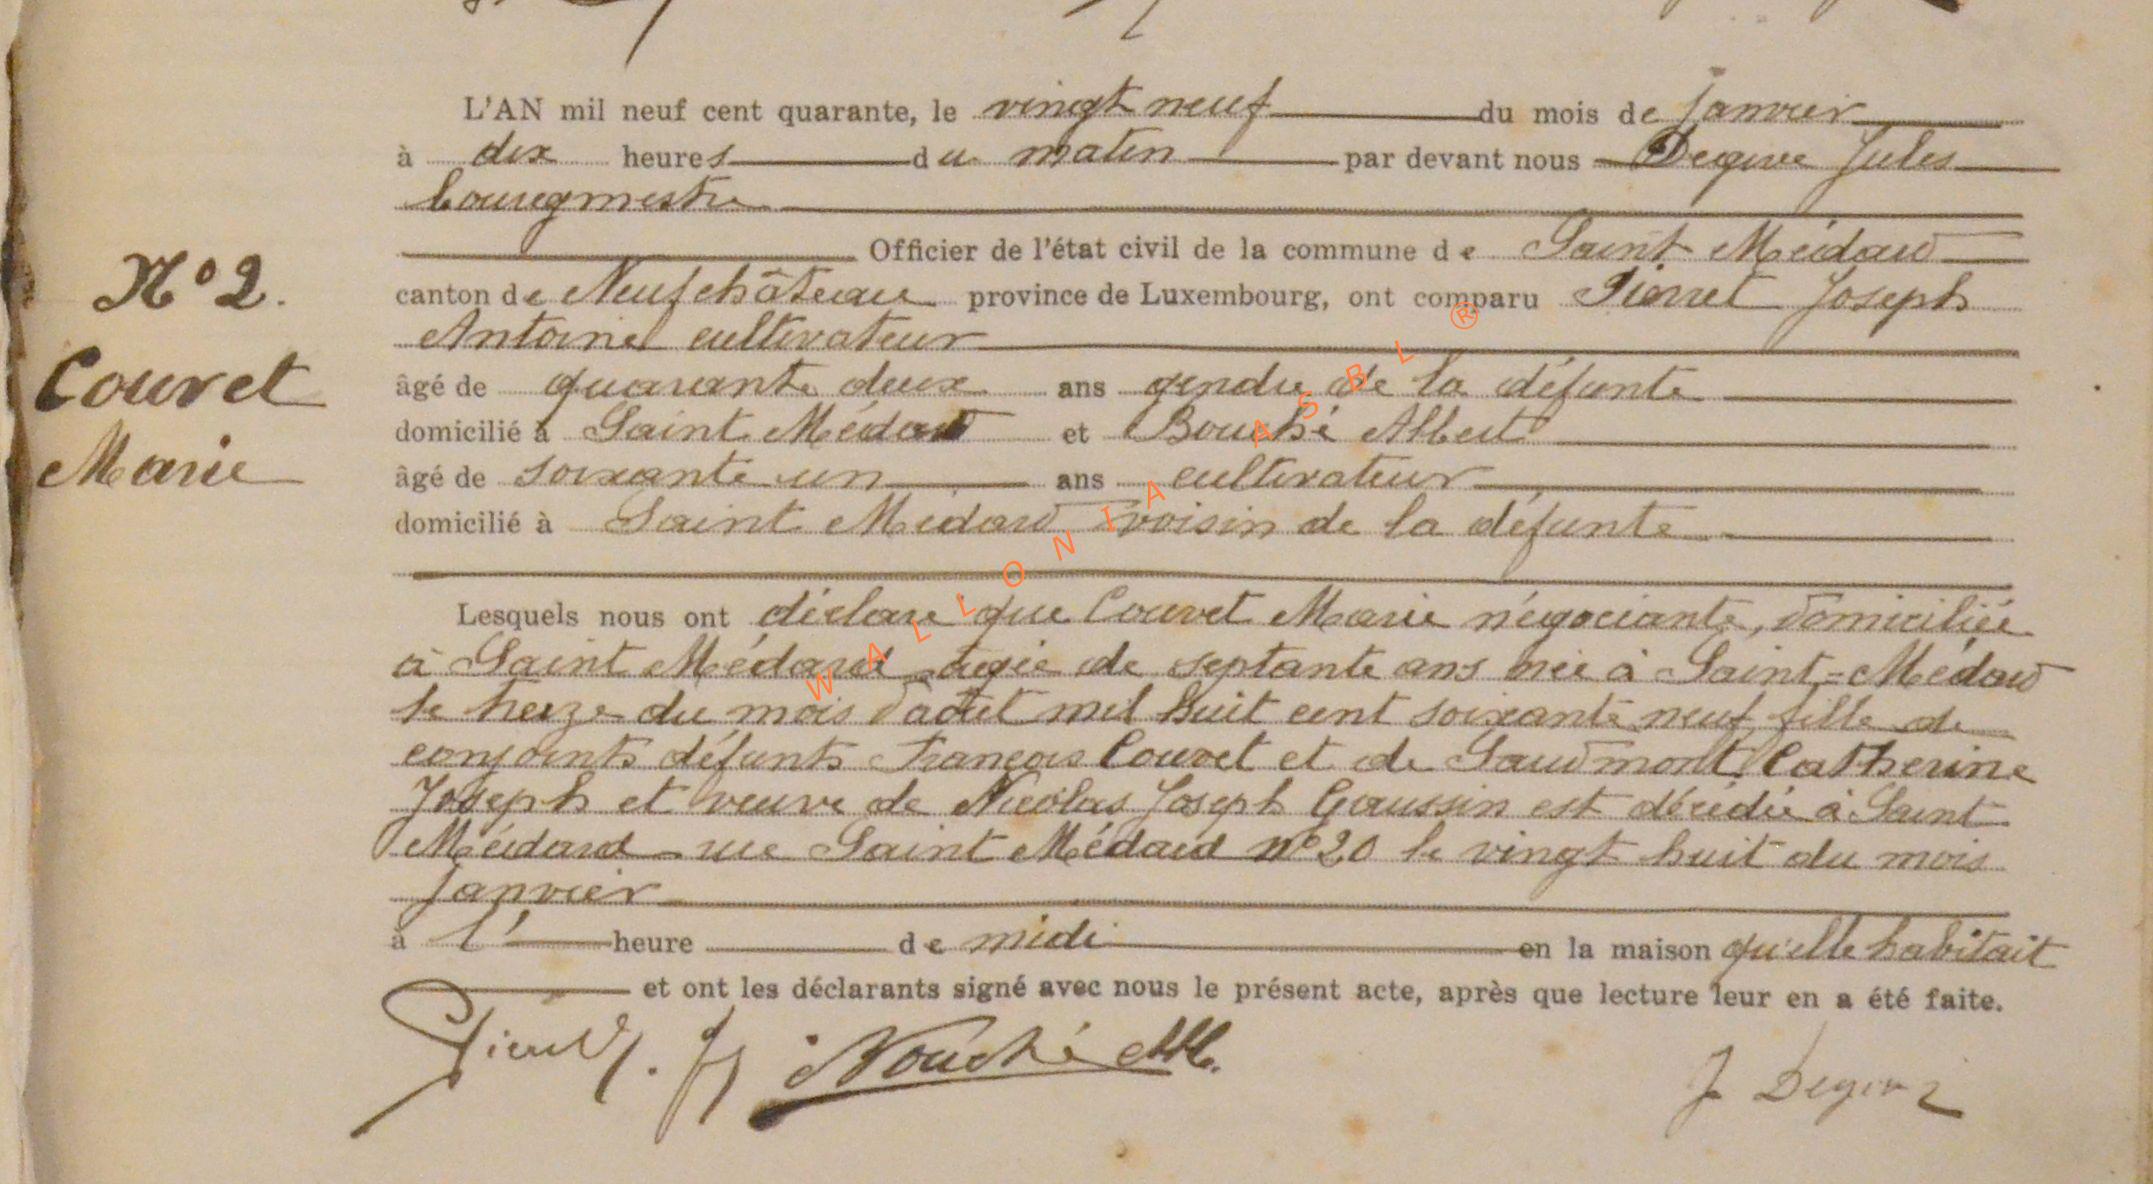 L'AN mil neuf cent quarante, le vingt neuf du mois de janvier
à dix heures du matin par devant nous Degive Jules
bourgmestre
Officier de l'état civil de la commune de Saint Médard
N° 2.
canton de Neufchâteau province de Luxembourg, ont comparu Pierret Joseph
Antoine cultivateur
Couvet
âgé de quarante deux ans gendre de la défunte
domicilié à Saint Médard et Bouché Albert
Marie
âgé de soixante un ans cultivateur
domicilié à Saint Médard voisin de la défunte
Lesquels nous ont déclare que Couvet Marie négociante, domiciliée
à Saint Médard agée de septante ans née à Saint-Médard
le treize du mois d'août mil huit cent soixante neuf fille de
conjoints défunts François Couvet et de Saudmont Catherine
Joseph et veuve de Nicolas Joseph Goussin est décédée à Saint
Médard rue Saint Médard n° 20 le vingt huit du mois
janvier
à l' heure de midi en la maison qu'elle habitait
et ont les déclarants signé avec nous le présent acte, après que lecture leur en a été faite.
Bouché Alb.
J Degive
WALLONIA ASBL ®